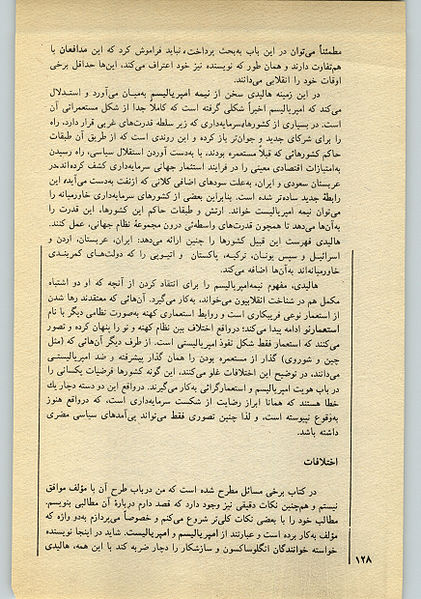 مطمئناً می‌توان در این باب به‌بحث پرداخت، نباید فراموش کرد که این مدافعان با
هم‌تفاوت دارند و همان طور که نویسنده نیز خود اعتراف می‌کند، این‌ها حداقل برخی
اوقات خود را انقلابی می‌دانند.
در این زمینه هالیدی سخن از نیمه امپریالیسم به‌میان می‌آورد و استدلال
می‌کند که امپریالیسم اخیراً شکلی گرفته است که کاملاً جدا از شکل مستعمراتی آن
است. در بسیاری از کشورها، سرمایه‌داری که زیر سلطه قدرت‌های غربی قرار دارد، راه
را برای شرکای جدید و جوان‌تر باز کرده و این روندی است که از طریق آن طبقات
حاکم کشورهائی که قبلاً مستعمره بودند، با به‌دست آوردن استقلال سیاسی، راه رسیدن
به‌امتیازات اقتصادی معینی را در فرایند استثمار جهانی سرمایه‌داری کشف کرده‌اند. در
عربستان سعودی و ایران، به‌علت سودهای اضافی کلانی که ازنفت به‌دست می‌آید، این
رابطهٔ جدید ساده‌تر شده است. بنابراین بعضی از کشورهای سرمایه‌داری خاورمیانه را
می‌توان نیمه امپریالیست خواند. ارتش و طبقات حاکم این کشورها، این قدرت را
به‌آن‌ها می‌دهد تا همچون قدرت‌های واسطه‌ئی درون مجموعهٔ نظام جهانی، عمل کنند.
هالیدی فهرست این قبیل کشورها را چنین ارائه می‌دهد: ایران، عربستان، اردن و
اسرائیل و سپس یونان، ترکیه، پاکستان و اتیوپی را که دولت‌های کمربندی
خاورمیانه‌اند به‌آن‌ها اضافه می‌کند.
هالیدی، مفهوم نیمه‌امپریالیسم را برای انتقاد کردن از آنچه که او دو اشتباه
مکمل هم در شناخت انقلابیون می‌خواند، به‌کار می‌گیرد. آن‌هائی که معتقدند رها شدن
از استعمار نوعی فریبکاری است و روابط استعماری کهنه به‌صورت نظامی دیگر با نام
استعمارنو ادامه پیدا می‌کند؛ درواقع اختلاف بین نظام کهنه و نو را پنهان کرده و تصور
می‌کنند که استعمار فقط شکل نفوذ امپریالیستی است. از طرف دیگر آن‌هائی که (مثل
چین و شوروی) گذار از مستعمره بودن را همان گذار پیشرفته و ضد امپریالیستی
می‌دانند، در توضیح این اختلافات غلو می‌کنند، این گونه کشورها فرضیات یکسانی را
در باب هویت امپریالیسم و استعمارگرائی به‌کار می‌گیرند. درواقع این دو دسته دچار یك
خطا هستند که همانا ابراز رضایت از شکست سرمایه‌داری است، که درواقع هنوز
به‌وقوع نپیوسته است، و لذا چنین تصوری فقط می‌تواند پی‌آمدهای سیاسی مضری
داشته باشد.
اختلافات
در کتاب برخی مسائل مطرح شده است که من درباب طرح آن با مؤلف موافق
نیستم و هم‌چنین نکات دقیقی نیز وجود دارد که قصد دارم دربارهٔ آن مطالبی بنویسم.
مطالب خود را با بعضی نکات کلی‌تر شروع می‌کنم و خصوصاً می‌پردازم به‌دو واژه که
مؤلف به‌کار برده است و عبارتند از امپریالیسم و امپریالیست. شاید در اینجا نویسنده
خواسته خوانندگان انگلوساکسون و سازشکار را دچار ضربه کند با این همه، هالیدی
۱۲۸